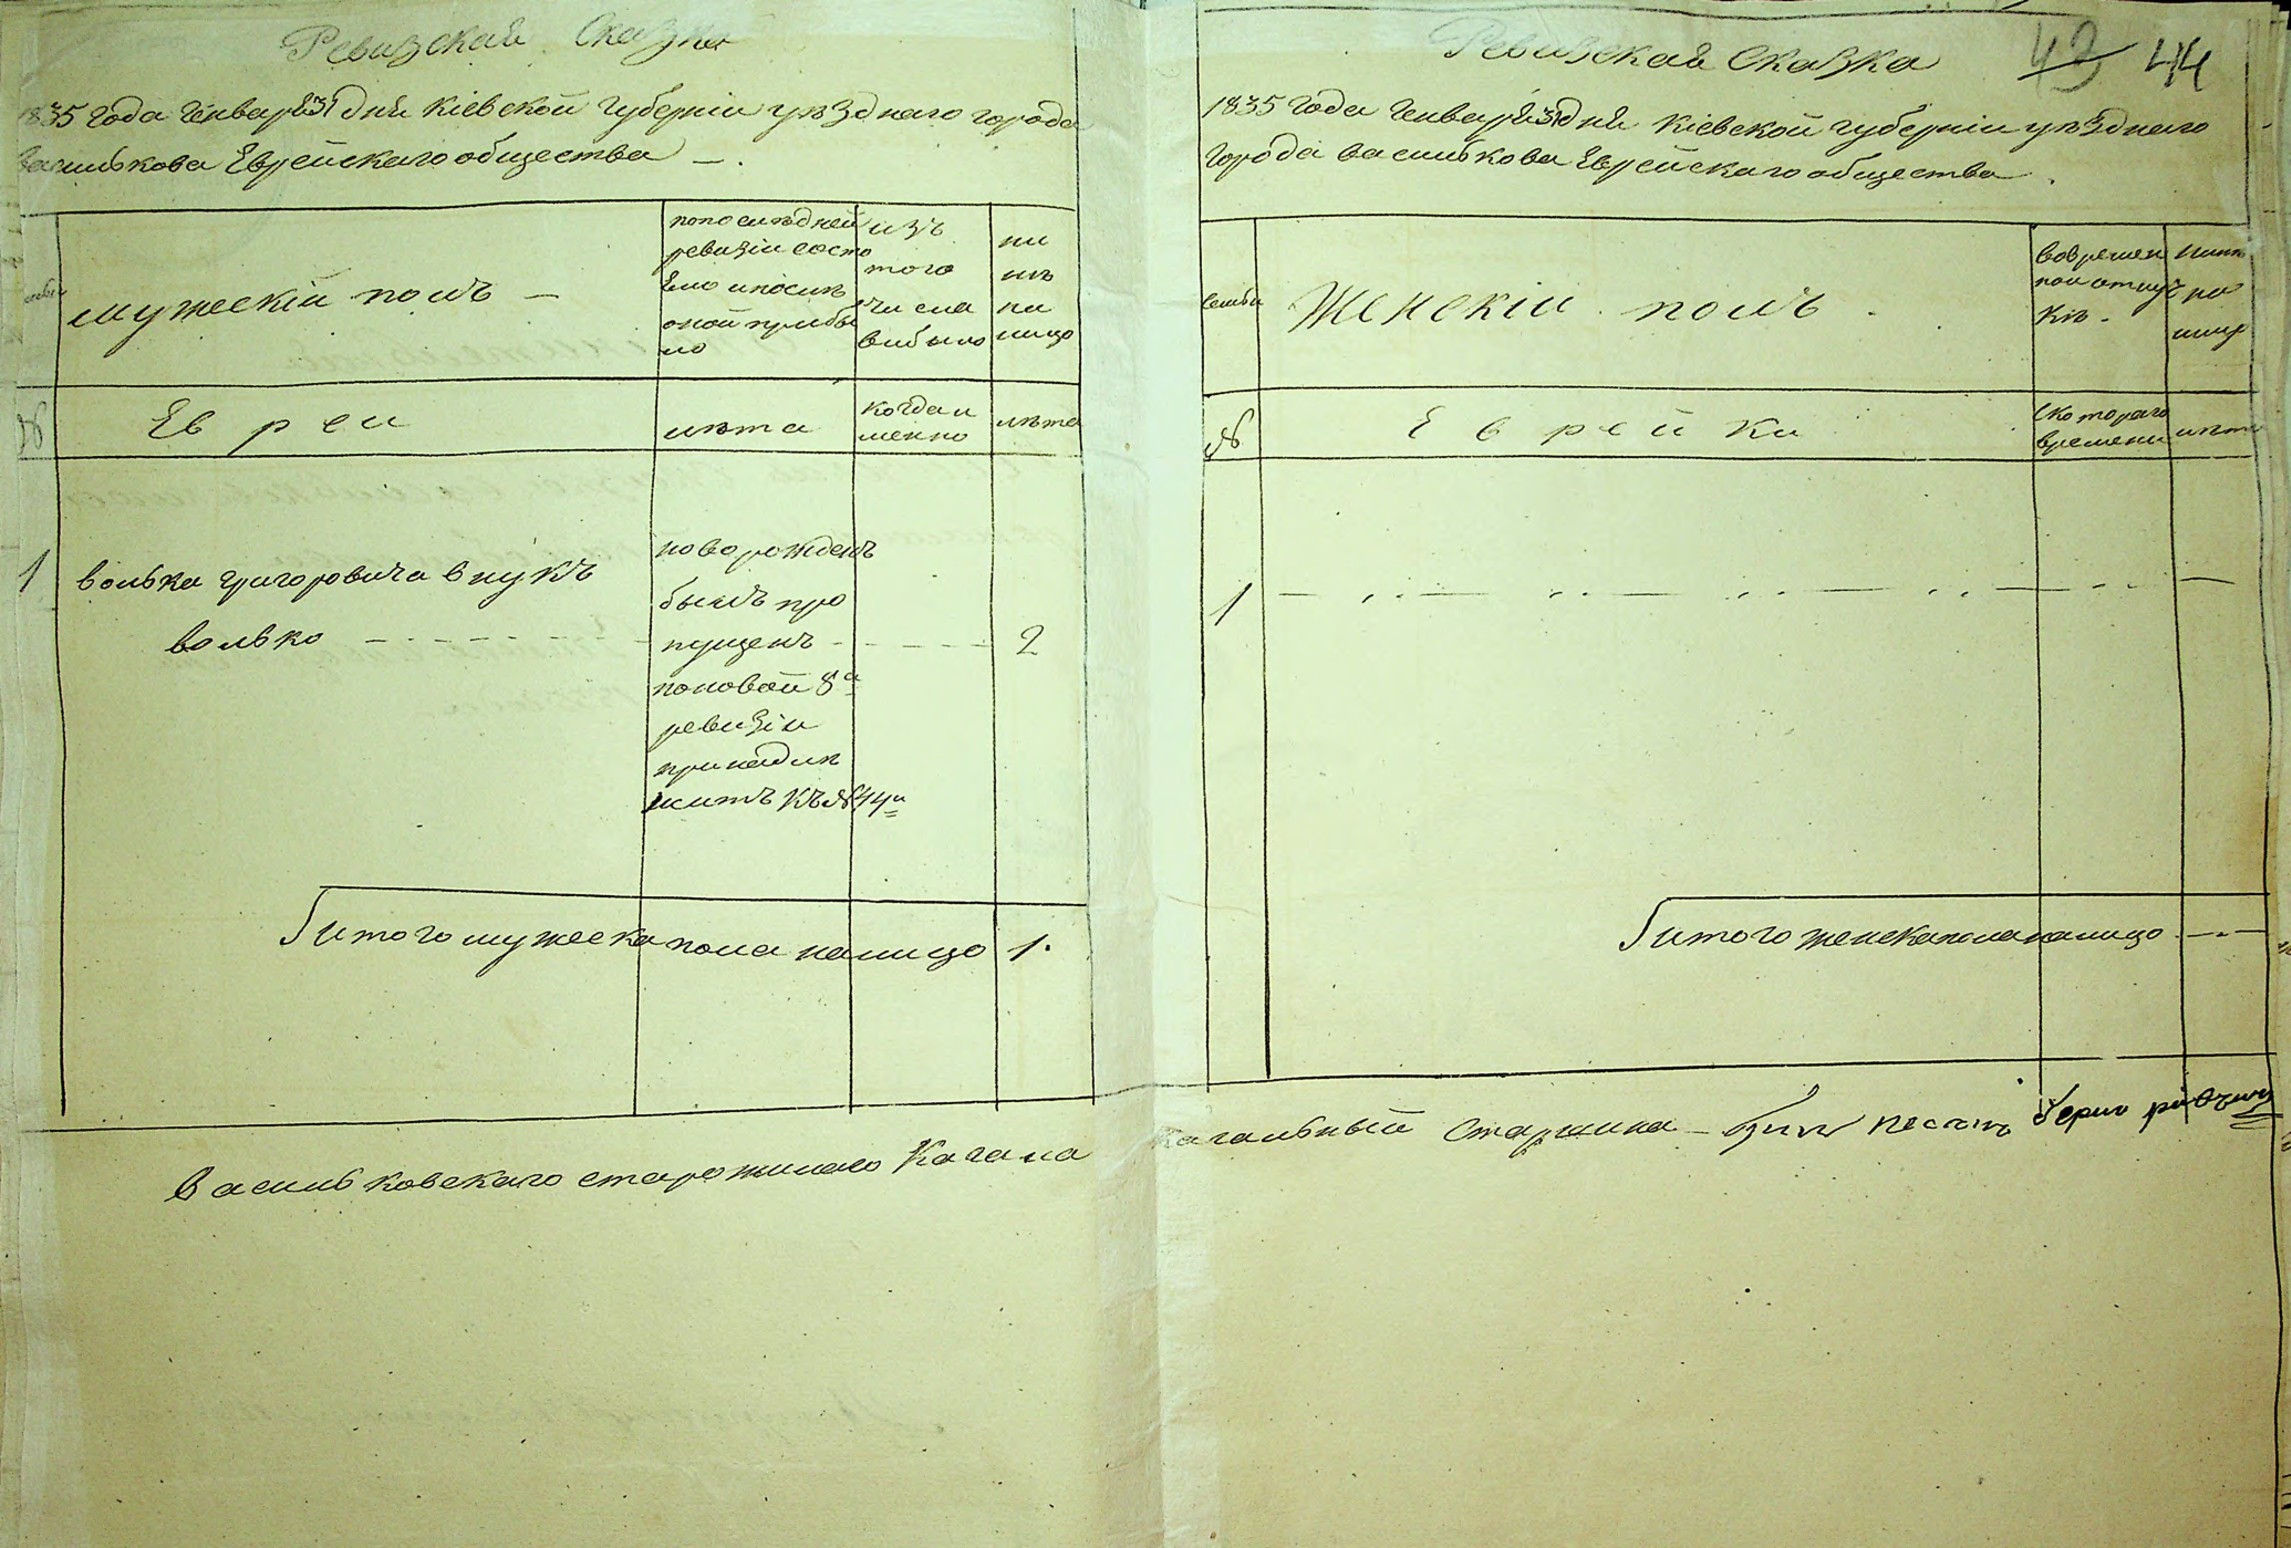 Ревизская Сказка
1835 года Генваря 31 дня Кіевской Губерніи уѣзднаго города
Василькова Еврейскаго общества —.
семьи
мужескій полъ —
попоследней
ревизіи состо
яло ипослѣ
оной прибы
ло
изъ
того
числа
выбыло
ны
нѣ
на
лицо
№
Евреи
лѣта
когда и
менно
лѣта
1
волька григоровича внукъ
волько
новорожденъ
былъ про
пущенъ
поновой 8й
ревизіи
принадле
житъ къ № 44й
2
итого мужеска пола налицо 1.
Васильковскаго старожилаго Кагала
Ревизская Сказка
43 44
1835 Года Генваря 31 дня Кіевской губерніи уѣзднаго
города василькова Еврейскаго общества.
семьи
Женскій полъ.
вовремен
ной отлуч
кѣ.
нынѣ
на
лицо
№
Еврейки
скотораго
времени
лѣта
1
итого женска пола налицо
Кагальный Старшина —